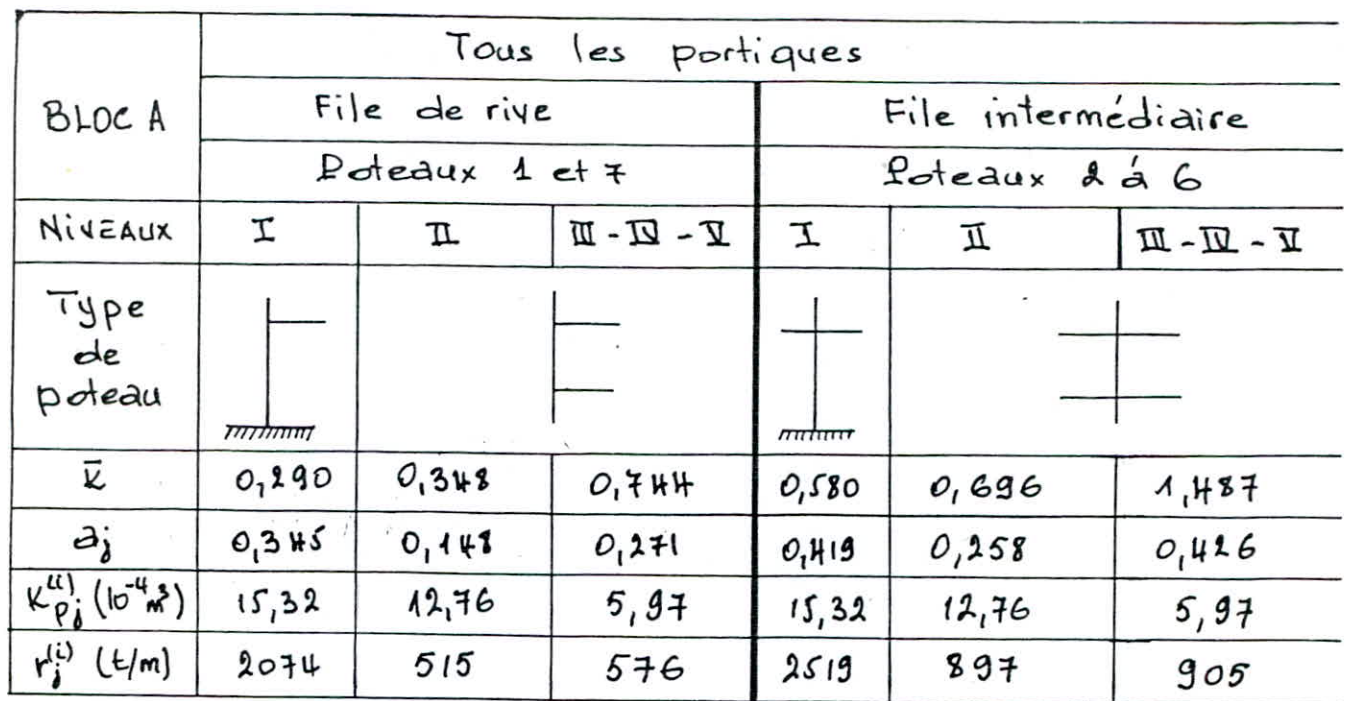 Tous les portiques
BLOC A
File de rive
File intermédiaire
Poteaux 1 et 7
Poteaux 2 à 6
NiVEAUX I II III - IV - V I II III - IV - V
Type
de
poteau
K̄ 0,290 0,348 0,744 0,580 0,696 1,487
aj 0,345 0,148 0,271 0,419 0,258 0,426
K_pj^(i) (10^-4 m^3) 15,32 12,76 5,97 15,32 12,76 5,97
r_j^(i) (t/m) 2074 515 576 2519 897 905